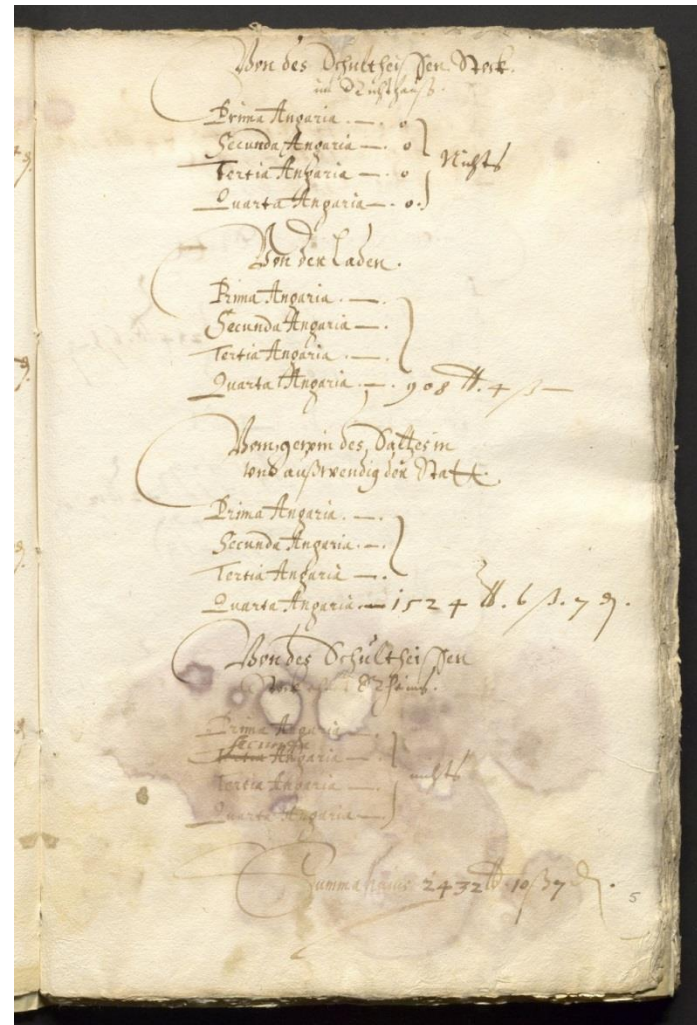 Von des Schultheissen Stock.
im Richthauß.
Prima Angaria. —. o
Secunda Angaria —. o
Tertia Angaria —. o
Quarta Angaria —. o.
Nichts
Von den Laden.
Prima Angaria. —.
Secunda Angaria —.
Tertia Angaria. —.
Quarta Angaria. —. 908 ℔. 4 ß —
Vom gewin des Saltzes in
vnd außwendig der Statt.
Prima Angaria. —.
Secunda Angaria. —.
Tertia Angaria —.
Quarta Angaria. — 1524 ℔. 6 ß. 7 ₰.
Von des Schultheissen
Stock Rheins.
Prima Angaria —.
Secunda
Angaria —.
Tertia Angaria —.
Quarta Angaria —.
nichts
Summa huius 2432 ℔ 10 ß 7 ₰.
5